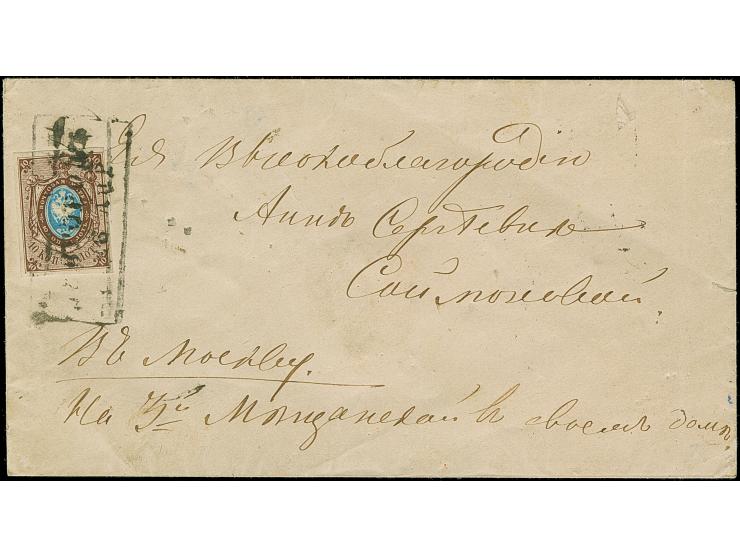 Ея Высокоблагородiю
Аннѣ Сергѣевнѣ
Соймоновой.
Въ Москву.
На 3й Мѣщанской въ своемъ домѣ.
10 КОП.